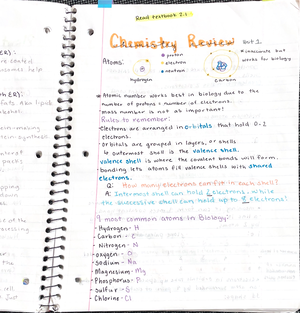 Read textbook 2.1
Chemistry Review
BUT!
• inaccurate but
works for biology
Atoms:
• proton
• electron
• neutron
hydrogen
Carbon
• Atomic number works best in biology due to the
number of protons = number of electrons.
*mass number is not as important!
Rules to remember:
• Electrons are arranged in orbitals that hold 0-2
electrons.
• Orbitals are grouped in layers, or shells
↳ outermost shell is the valence shell.
valence shell is where the covalent bonds will form.
bonding lets atoms fill valence shells with shared
electrons.
Q: How many electrons can fit in each shell?
A: Innermost shell can hold 2 electrons, while
the successive shell can hold up to 8 electrons!
9 most common atoms in Biology:
• Hydrogen - H
• Carbon - C
• Nitrogen - N
• oxygen - O
• sodium - Na
• Magnesium - Mg
• Phosphorus - P
• sulfur - S
• Chlorine - Cl